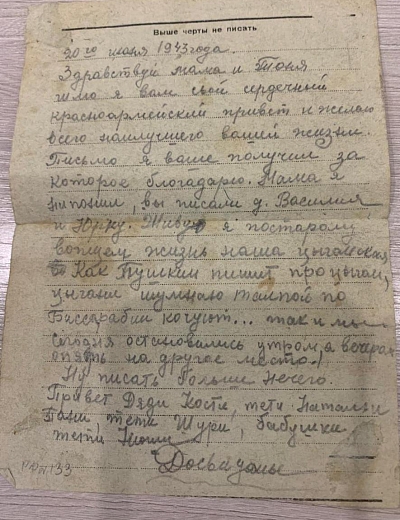 Выше черты не писать
20го июня 1943 года.
Здравствуй мама и Тоня
шлю я вам свой сердечный
красноармейский привет и желаю
всего наилучшего вашей жизни.
Письмо я ваше получил за
которое благодарю. Мама я
вы писали д. Василия
и Юрку. Живу я постарому
вопщем жизнь наша цыганская
Как Пушкин пишит про цыган,
цыгани шумною талпой по
Бассарабии кочуют... так и мы
сегодня остоновились утром, а вечером
опять на другое место.
Ну писать больше нечего.
Привет Дяди Кости, тети Натальи
Тани тети Шури, бабушки
тети
Досвиданьи